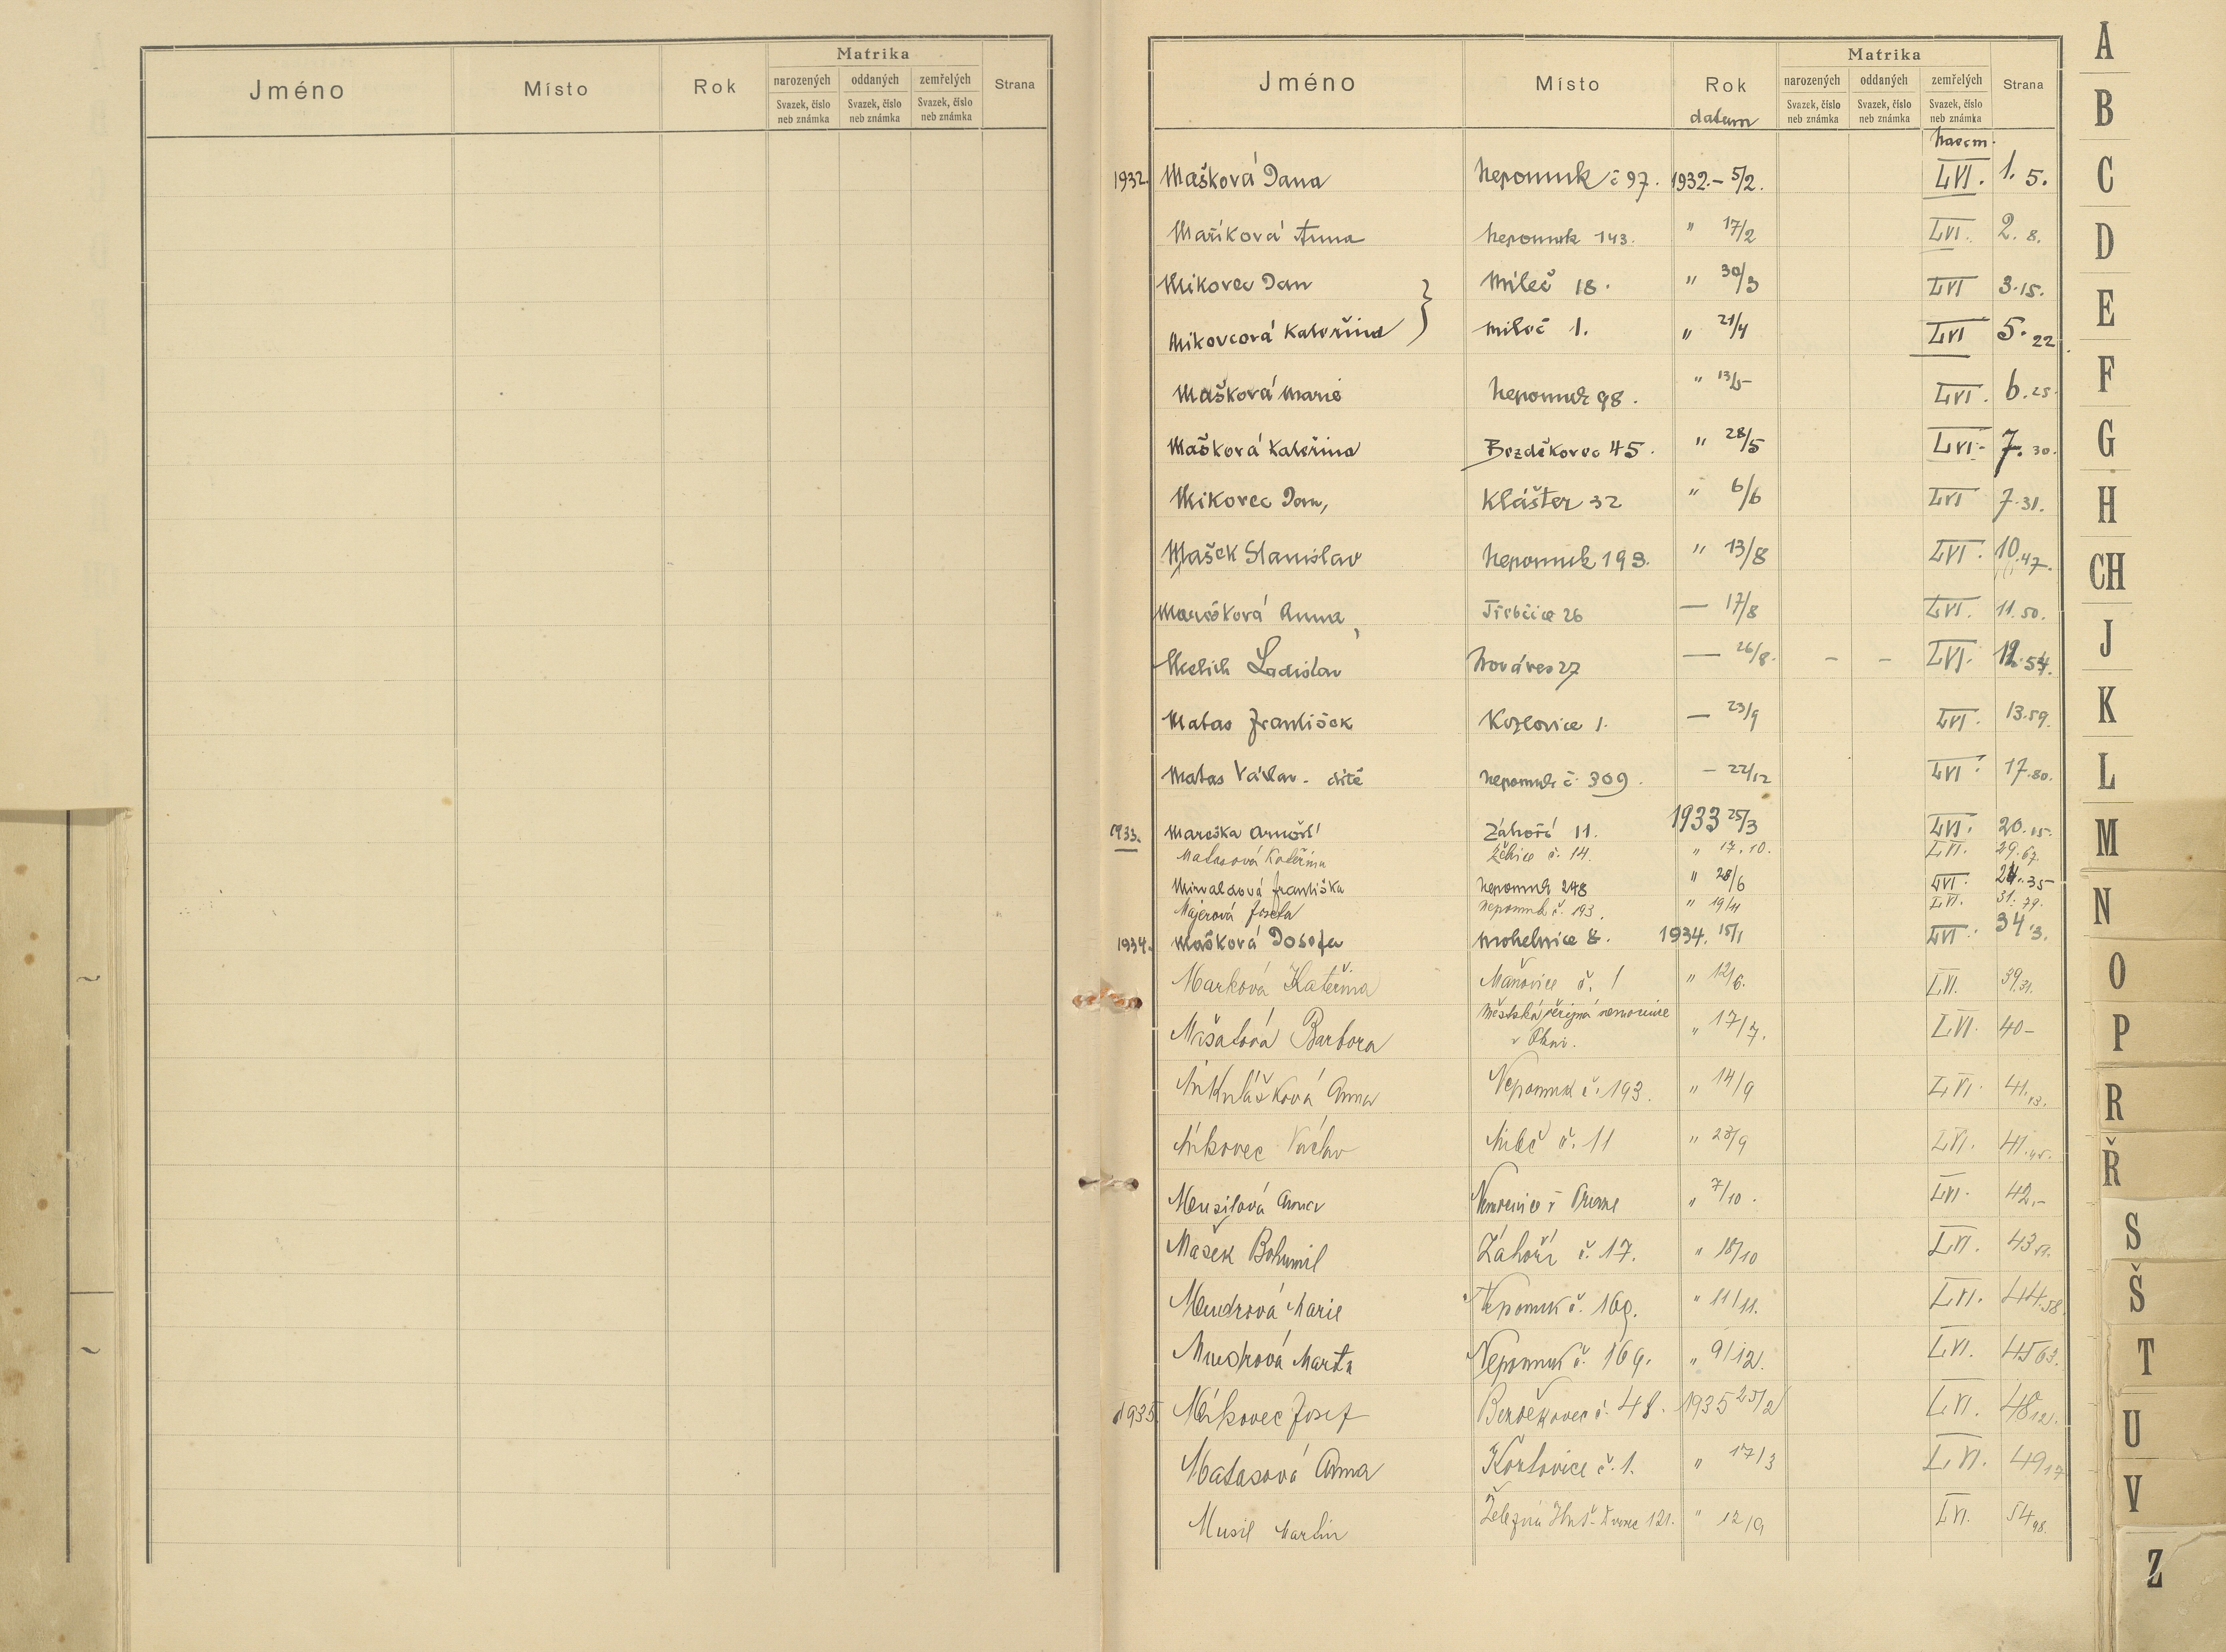 Jméno Místo Rok Matrika Strana
narozených oddaných zemřelých
Svazek, číslo neb známka Svazek, číslo neb známka Svazek, číslo neb známka
Jméno Místo Rok Matrika Strana
narozených oddaných zemřelých
datum Svazek, číslo neb známka Svazek, číslo neb známka Svazek, číslo neb známka
1932. Mašková Jana Nepomuk č 97. 1932.- 5/2. LVI. 1. 5.
Maříková Anna Nepomuk 143. " 17/2 LVI. 2. 8.
Mikovec Jan Mileč 18. " 30/3 LVI 3. 15.
Mikovcová Kateřina Mileč 1. " 21/4 LVI 5. 22
Mašková Marie Nepomuk 98. " 13/5 LVI. 6. 25.
Mašková Kateřina Bezděkovec 45. " 28/5 LVI. 7. 30.
Mikovec Jan, Klášter 32 " 6/6 LVI 7. 31.
Mašek Stanislav Nepomuk 193. " 13/8 LVI. 10. 47.
Marešková Anna, Třebčice 26 — 17/8 LVI. 11. 50.
Ladislav Nová ves 27 — 26/8. - - LVI. 12. 54.
Matas František Kozlovice 1. — 23/9 LVI. 13. 59.
Matas Václav - dítě Nepomuk č. 309. - 22/12 LVI. 17. 80.
1933. Mareška Arnošt Záhoří 11. 1933 25/3 LVI. 20. 15.
Matasová Kateřina č. 14. " 17. 10. LVI. 29. 67.
Františka Nepomuk 248 " 28/6 LVI. 24. 35
Majerová Josefa Nepomuk č. 193. " 19/11 LVI. 31. 79.
1934. Mašková Josefa Mohelnice 8. 1934. 15/1 LVI. 34. 3.
Marková Kateřina Maňovice č. 1 " 12/6. LVI. 39. 31.
Mašatová Barbora Městská veřejná nemocnice " 17/7. LVI. 40-
v Plzni.
Mikulášková Anna Nepomuk č. 193. " 14/9 LVI. 41. 43.
Mikovec Václav Mileč č. 11 " 23/9 LVI. 41. 45.
Musilová Anna Nemocnice v Praze " 7/10. LVI. 42.-
Mašek Bohumil Záhoří č. 17. " 18/10 LVI. 43 51.
Mudrová Marie Nepomuk č. 169. " 11/11. LVI. 44. 58.
Mudrová Marta Nepomuk č. 169. " 9/12. LVI. 45 63.
1935 Mikovec Josef Bezděkovec č. 48. 1935 25/2 LVI. 48 12.
Matasová Anna Kozlovice č. 1. " 17/3 LVI. 49 17
Musil Martin Železná Huť - Dvorec 121. " 12/9 LVI. 54 48.
A
B
C
D
E
F
G
H
CH
J
K
L
M
N
O
P
R
Ř
S
Š
T
U
V
Z